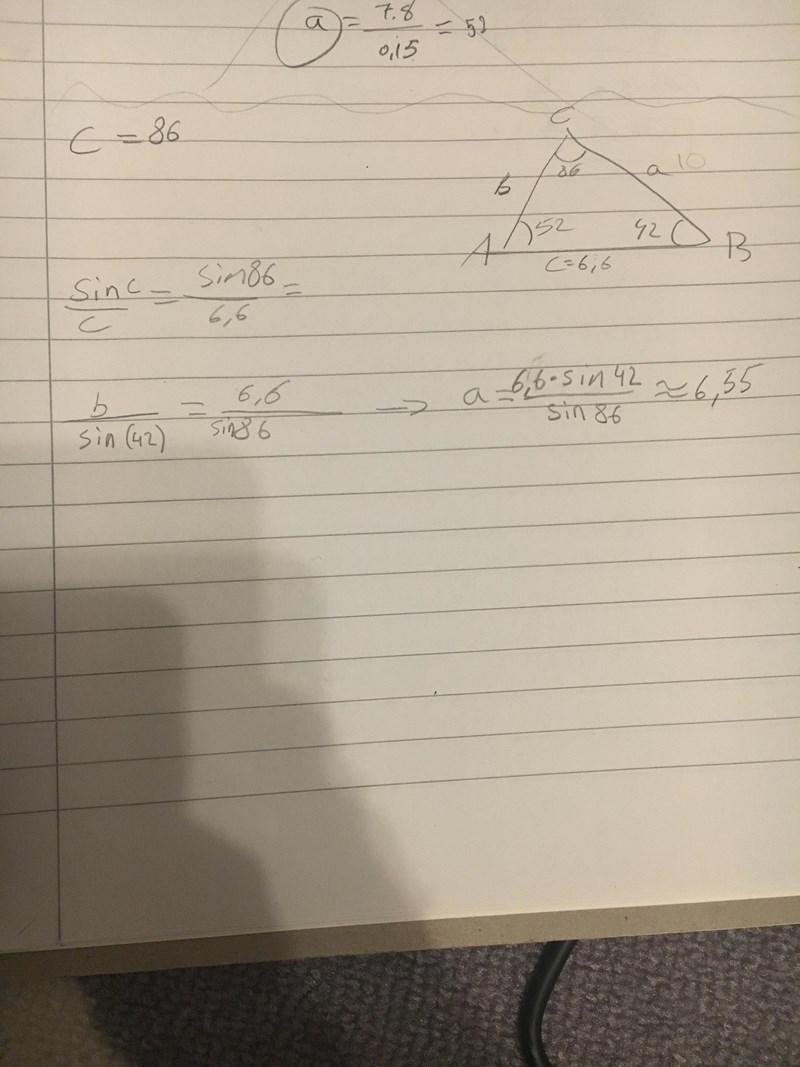 a = 7.8 / 0,15 = 52
C = 86
C
b 86 a 10
A 52 42 B
C=6,6
sin C / C = sin86 / 6,6 =
b / sin (42) = 6,6 / sin86 → a = 6,6 · sin 42 / sin 86 ≈ 6,55